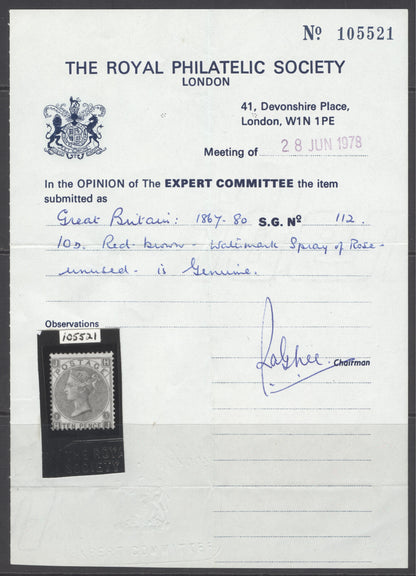 Nº 105521
THE ROYAL PHILATELIC SOCIETY
LONDON
41, Devonshire Place,
London, W1N 1PE
Meeting of 28 JUN 1978
In the OPINION of The EXPERT COMMITTEE the item
submitted as
Great Britain: 1867-80 S.G. Nº 112.
10d. Red-brown - Watermark Spray of Rose -
unused - is Genuine.
Observations
105521
Chairman
POSTAGE
TEN PENCE
THE ROYAL
SOCIETY
EXPERT COMMITTEE